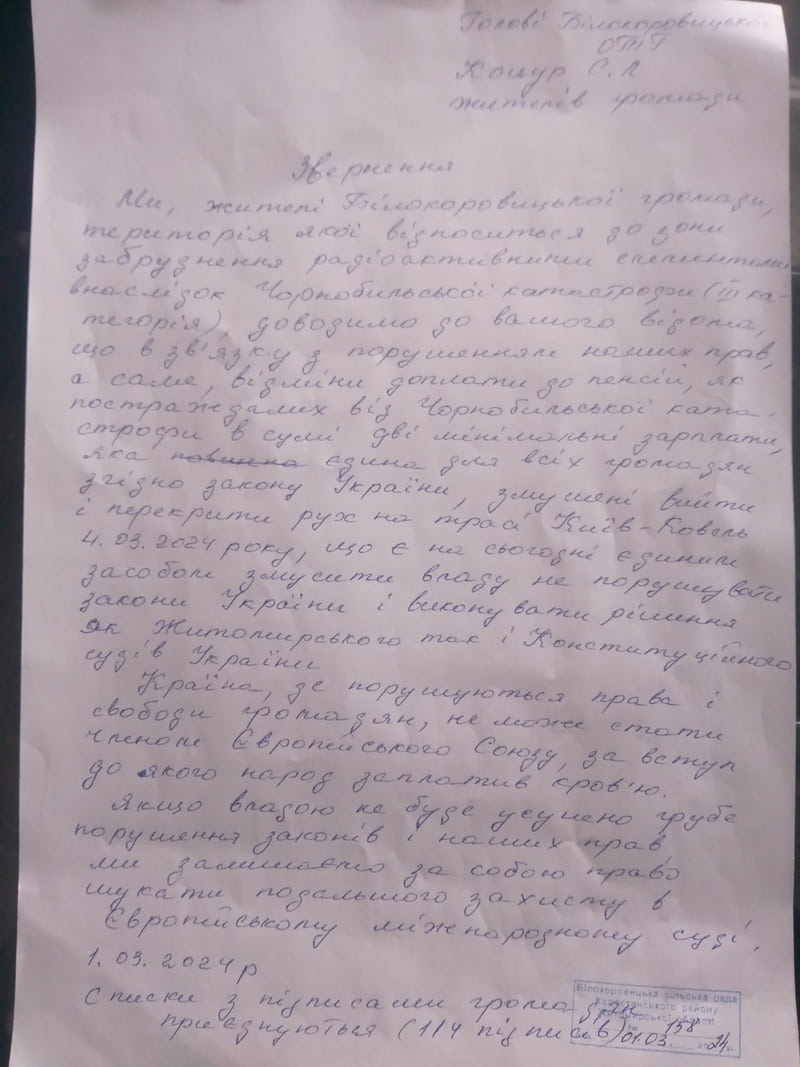 Голові Білокоровицької
ОТГ
Кошур С.Л
жителів громади
Звернення
Ми, жителі Білокоровицької громади,
територія якої відноситься до зони
забруднення радіоактивними елементами
внаслідок Чорнобильської катастрофи (ІІІ ка-
тегорія), доводимо до вашого відома,
що в зв'язку з порушенням наших прав,
а саме, відміни доплати до пенсій, як
постраждалих від Чорнобильської ката-
строфи в сумі дві мінімальні зарплати,
яка повинна єдина для всіх громадян
згідно закону України, змушені вийти
і перекрити рух на трасі Київ-Ковель
4.03.2024 року, що є на сьогодні єдиним
засобом змусити владу не порушувати
закони України і виконувати рішення
як Житомирського так і Конституційного
судів України
Країна, де порушуються права і
свободи громадян, не може стати
членом Європейського Союзу, за вступ
до якого народ заплатив кров'ю.
Якщо владою не буде усунено грубе
порушення законів і наших прав
ми залишаємо за собою право
шукати подальшого захисту в
Європейському міжнародному суді.
1.03.2024 р
Списки з підписами громадян
приєднуються (114 підписів)
Білокоровицька сільська рада
Коростенського району
Житомирської області
№ 158
01.03. 2024 р.